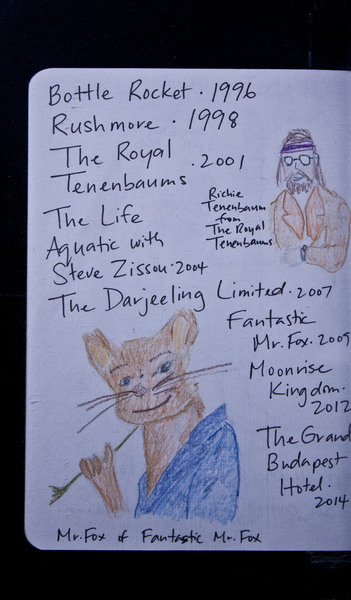 Bottle Rocket · 1996
Rushmore · 1998
The Royal
Tenenbaums · 2001
Richie
Tenenbaum
from
The Royal
Tenenbaums
The Life
Aquatic with
Steve Zissou · 2004
The Darjeeling Limited · 2007
Fantastic
Mr. Fox · 2009
Moonrise
Kingdom ·
2012
The Grand
Budapest
Hotel ·
2014
Mr. Fox of Fantastic Mr. Fox